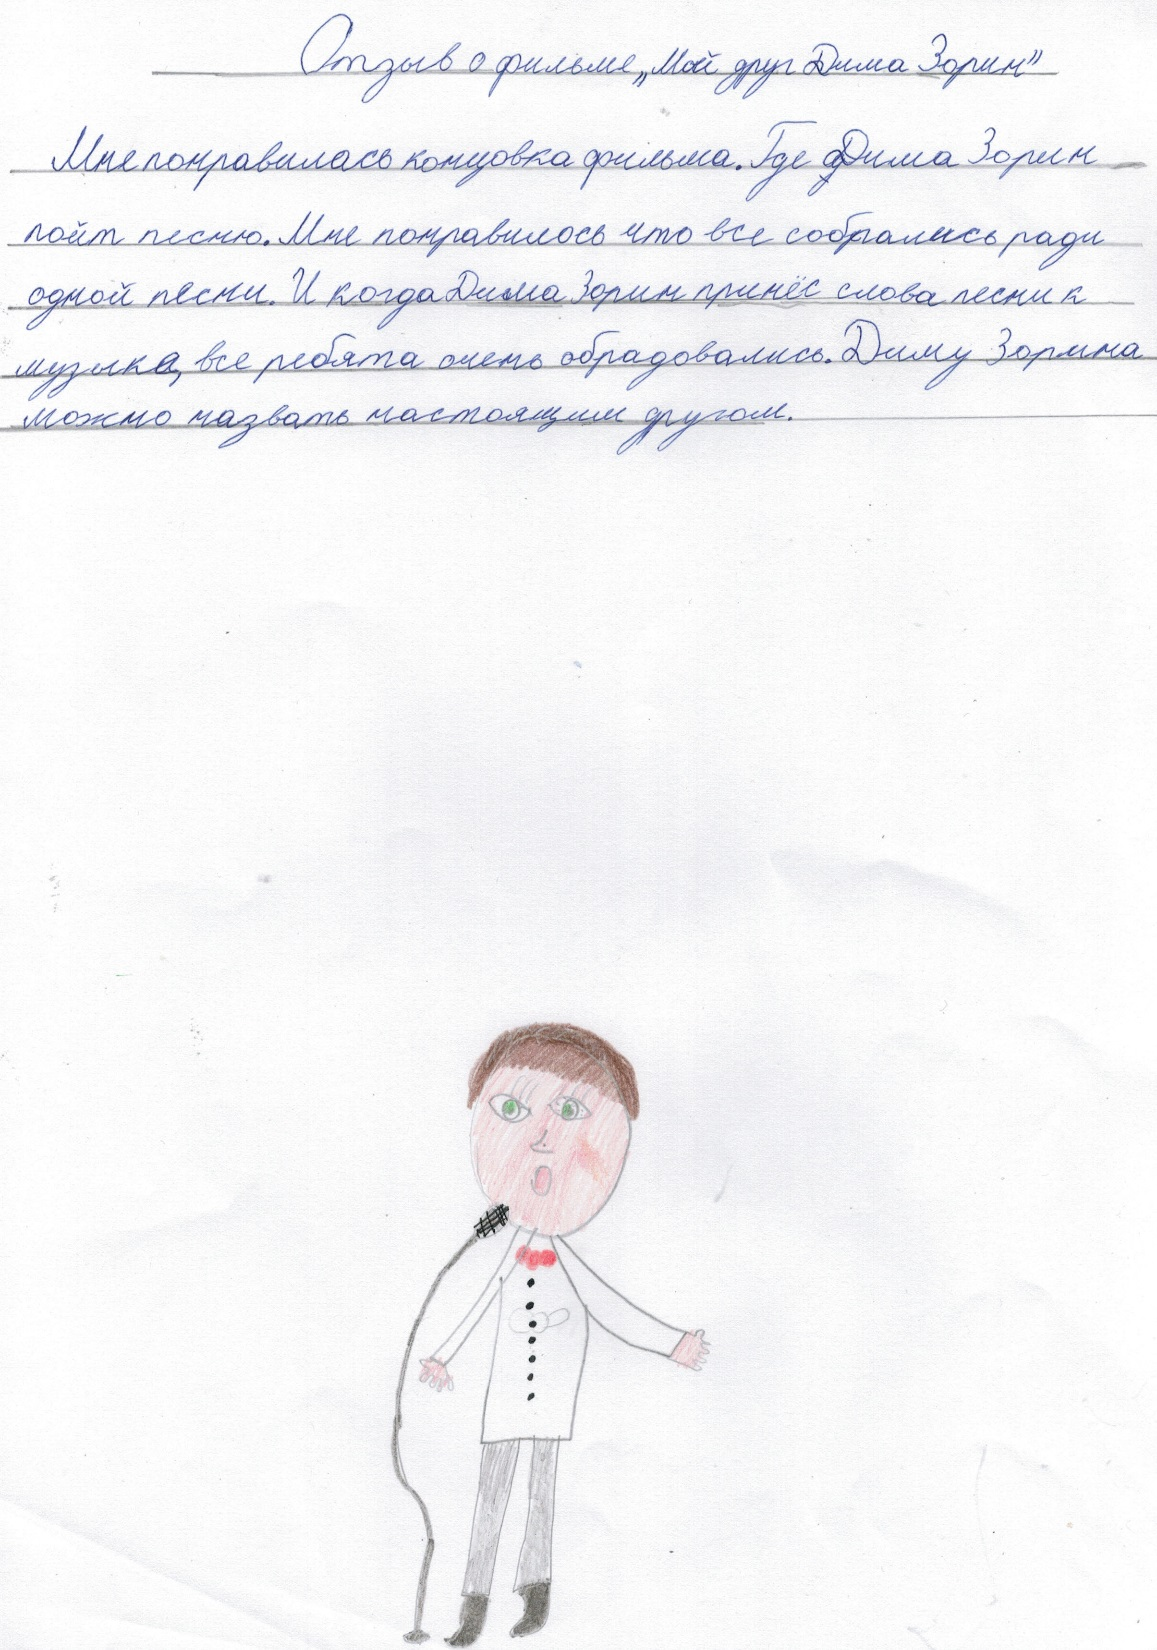 Отзыв о фильме „Мой друг Дима Зорин”
Мне понравилась концовка фильма. Где Дима Зорин
поёт песню. Мне понравилось что все собрались ради
одной песни. И когда Дима Зорин принёс слова песни к
музыке, все ребята очень обрадовались. Диму Зорина
можно назвать настоящим другом.